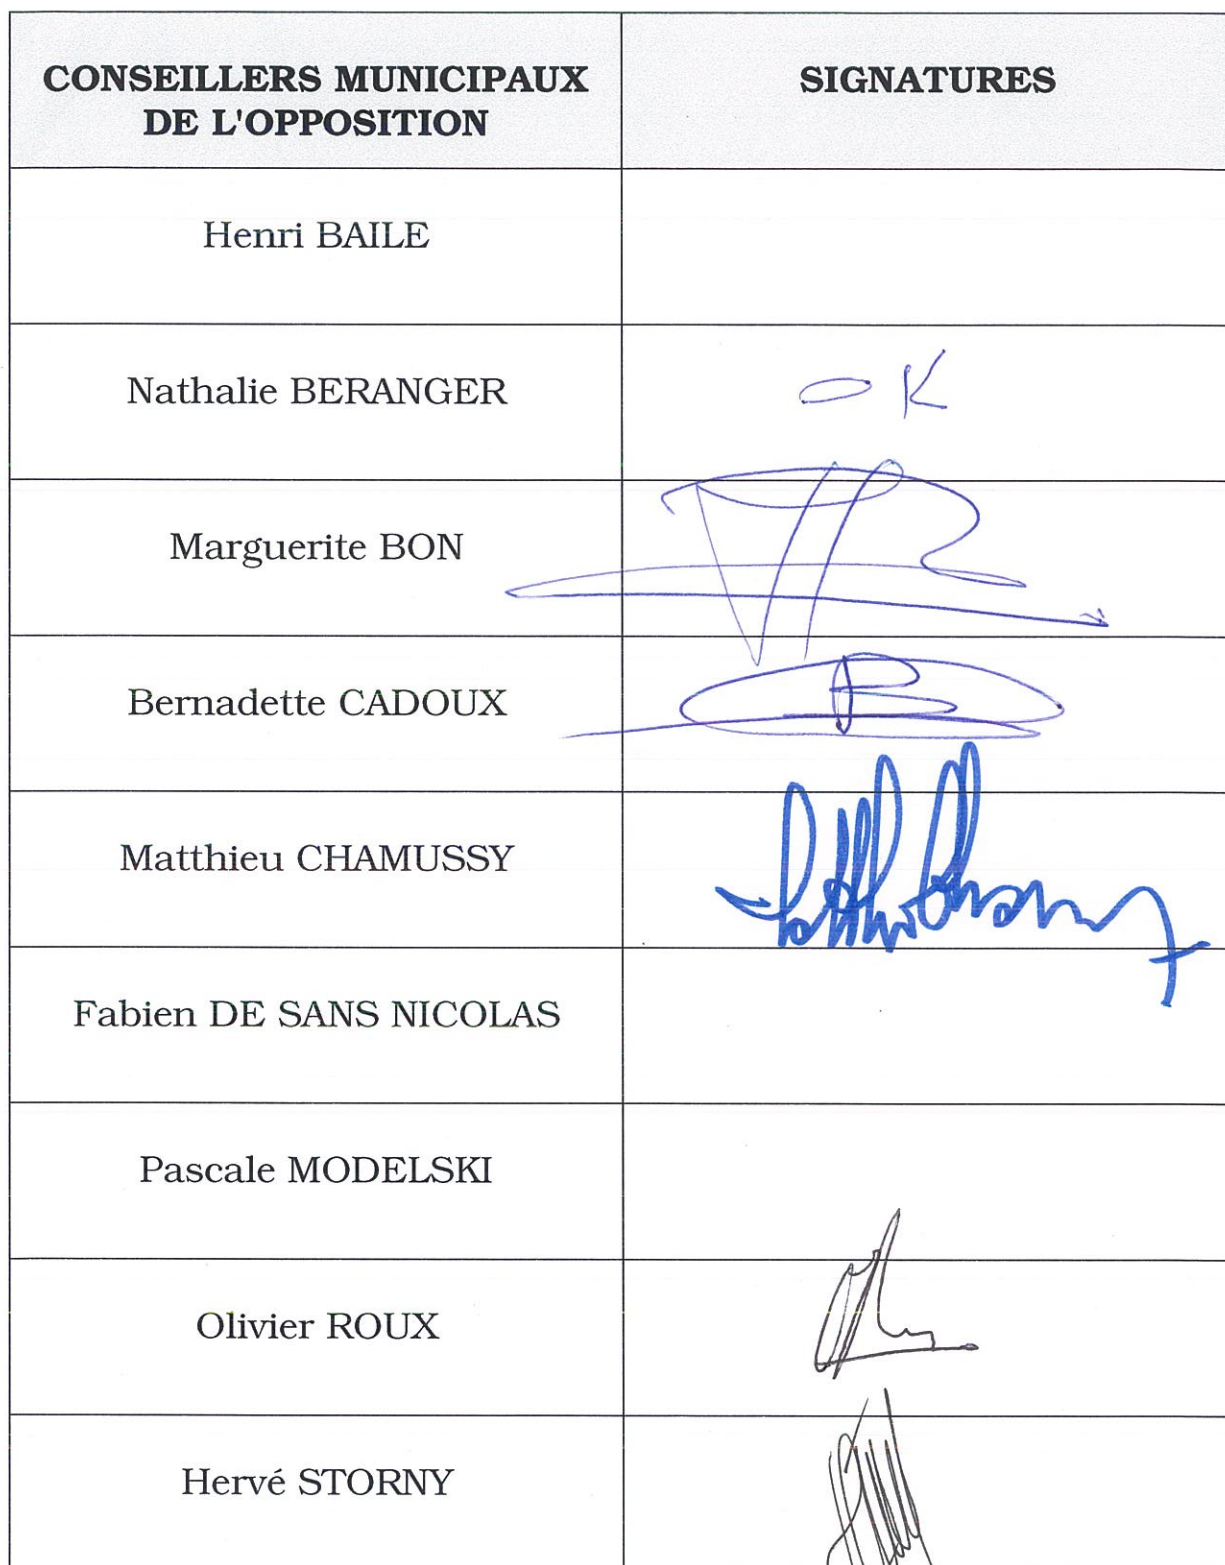 CONSEILLERS MUNICIPAUX
DE L'OPPOSITION
SIGNATURES
Henri BAILE
Nathalie BERANGER
OK
Marguerite BON
Bernadette CADOUX
Matthieu CHAMUSSY
Fabien DE SANS NICOLAS
Pascale MODELSKI
Olivier ROUX
Hervé STORNY